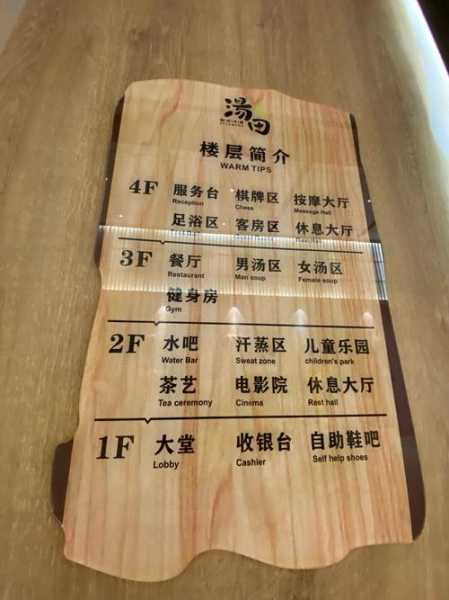 湯田
楼层简介
WARM TIPS
4F 服务台 棋牌区 按摩大厅
Reception Chess Massage Hall
足浴区 客房区 休息大厅
3F 餐厅 男汤区 女汤区
Restaurant Man soup Female soup
健身房
Gym
2F 水吧 汗蒸区 儿童乐园
Water Bar Sweat zone children's park
茶艺 电影院 休息大厅
Tea ceremony Cinema Rest hall
1F 大堂 收银台 自助鞋吧
Lobby Cashier Self help shoes